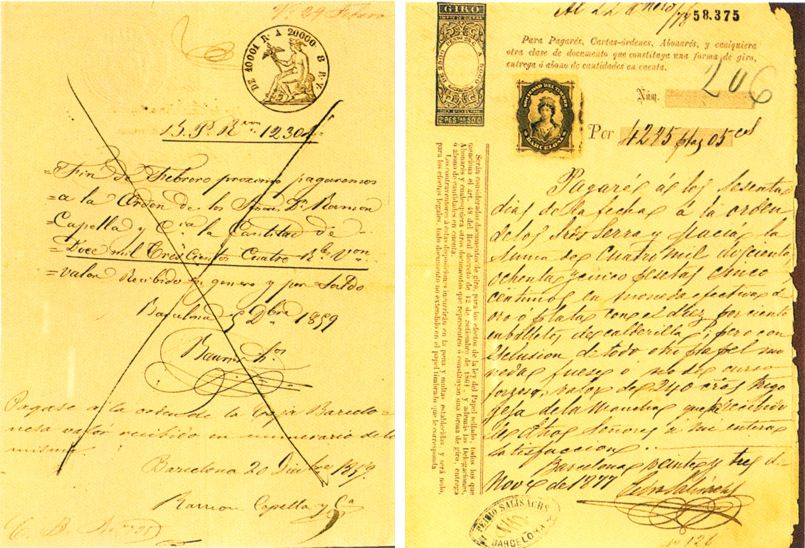 DE 10001 R. A 20000.
B. Pr. Rvon 12304
Fin de Febrero proximo pagaremos
a la Orden de los Sres. Dn. Ramon
Capella y Cia la Cantidad de
Doce mil Trescientos Cuatro Rs. Von
valor Recibido en genero y por Saldo
Barcelona 5 Dbre 1859
Paguese a la orden de la Caja Barcelo=
nesa valor recibido en numerario de la
misma.
Barcelona 20 Dicbre 1859.
Ramon Capella y Ca
GIRO
58.375
Para Pagarés, Cartas-órdenes, Abonarés, y cualquiera
otra clase de documento que constituya una forma de giro,
entrega ó abono de cantidades en cuenta.
206
Núm.
BARCELONA
Por 4285 ptas 05 cs
Serán considerados documentos de giro, para los efectos de la ley del Papel sellado, todos los que
menciona el art. 48 del Real decreto de 12 de Setiembre de 1861, y además las Delegaciones,
Abonarés y cualesquiera otros documentos que representen ó constituyan una forma de giro, entrega
ó abono de cantidades en cuenta.
Los contraventores á estas disposiciones incurrirán en la pena y multas establecidas, y será nulo,
para los efectos legales, todo documento no extendido en el papel timbrado que le corresponda.
Pagaré á los sesenta
dias de la fecha á la orden
de los Sres Serra y la
suma de cuatro mil doscientos
ochenta y cinco pesetas cinco
centimos en moneda efectiva de
oro ó plata con el diez por ciento
en calderilla; pero con
esclusion de todo otro papel mo
neda fuese ó no de curso
forzoso, valor de 240
recibido
de dhos señores á mi entera
satisfaccion.
Barcelona veinte y tres de
Novre de 1877
PEDRO SALISACHS
BARCELONA